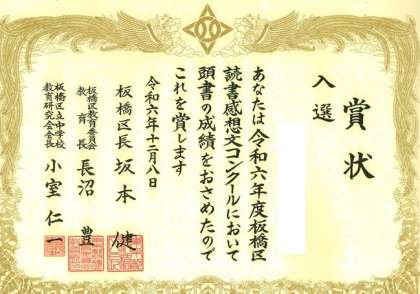 賞状
入選
あなたは令和六年度板橋区
読書感想文コンクールにおいて
頭書の成績をおさめたので
これを賞します
令和六年十二月八日
板橋区長 坂本 健
板橋区教育委員会
教育長 長沼 豊
板橋区立中学校
教育研究会会長 小室 仁一